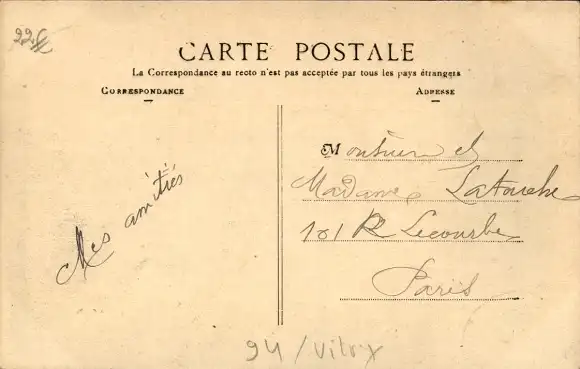 CARTE POSTALE
La Correspondance au recto n'est pas acceptée par tous les pays étrangers
CORRESPONDANCE
ADRESSE
Mes amitiés
Monsieur et
Madame Latouche
101 R Lecourbe
Paris
94/Vitry